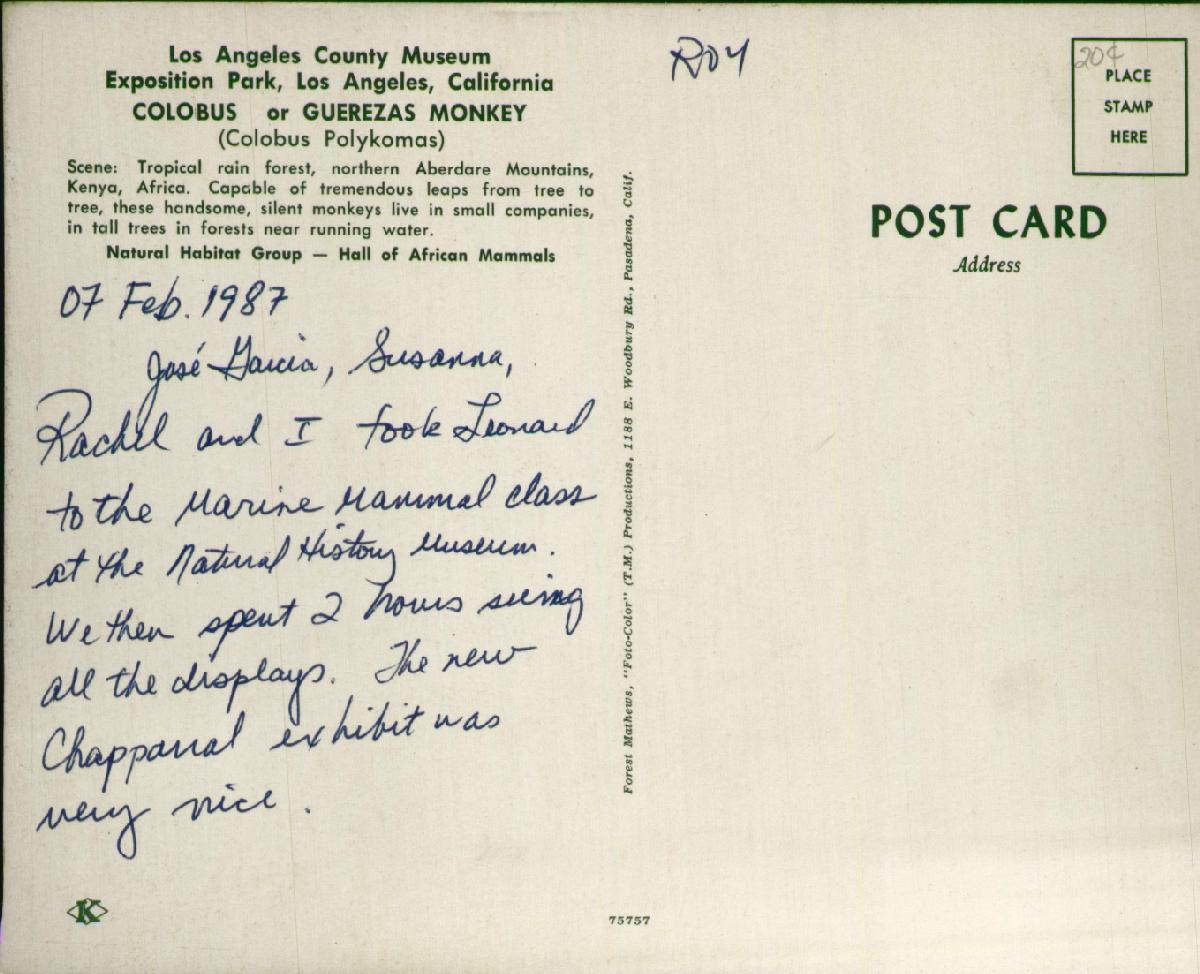 Los Angeles County Museum
Exposition Park, Los Angeles, California
COLOBUS or GUEREZAS MONKEY
(Colobus Polykomas)
Scene: Tropical rain forest, northern Aberdare Mountains,
Kenya, Africa. Capable of tremendous leaps from tree to
tree, these handsome, silent monkeys live in small companies,
in tall trees in forests near running water.
Natural Habitat Group — Hall of African Mammals
07 Feb. 1987
José Garcia, Susanna,
Rachel and I took Leonard
to the Marine Mammal class
at the Natural History Museum.
We then spent 2 hours seeing
all the displays. The new
Chapparral exhibit was
very nice.
K
Forest Mathews, "Foto-Color" (T.M.) Productions, 1188 E. Woodbury Rd., Pasadena, Calif.
75757
R04
20¢
PLACE
STAMP
HERE
POST CARD
Address